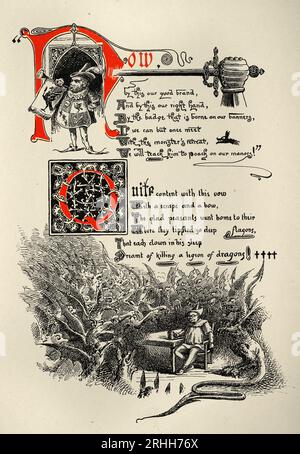 Now,
By this our good brand,
And by this our right hand,
By the badge that is borne on our banners,
If we can but once meet
With this monster's retreat,
We will teach him to poach on our manors!"
Quite content with this vow
With a scrape and a bow,
The glad peasants went home to their
flagons,
Where they tippled so deep
That each clown in his sleep
Dreamt of killing a legion of dragons!
alamy
Image ID: 2RHH76X
www.alamy.com